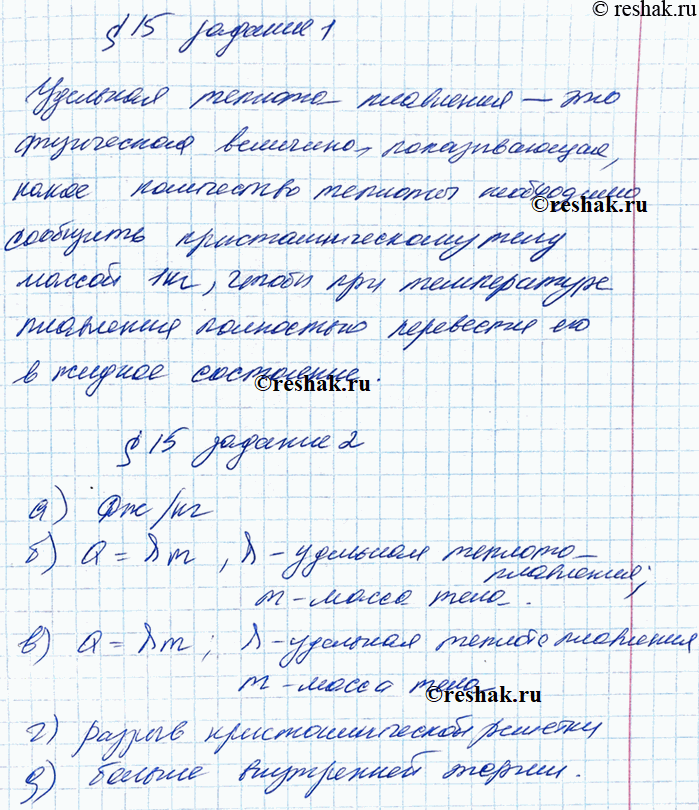 © reshak.ru
§ 15 задание 1
Удельная теплота плавления — это
физическая величина, показывающая,
какое количество теплоты необходимо
©reshak.ru
сообщить кристаллическому телу
массой 1кг, чтобы при температуре
плавления полностью перевести его
в жидкое состояние.
©reshak.ru
§ 15 задание 2
а) Дж/кг
б) Q = λm, λ - удельная теплота
плавления;
m - масса тела.
в) Q = λm; λ - удельная теплота плавления
m - масса тела
©reshak.ru
г) разрыв кристаллической решетки
д) больше внутренней энергии.